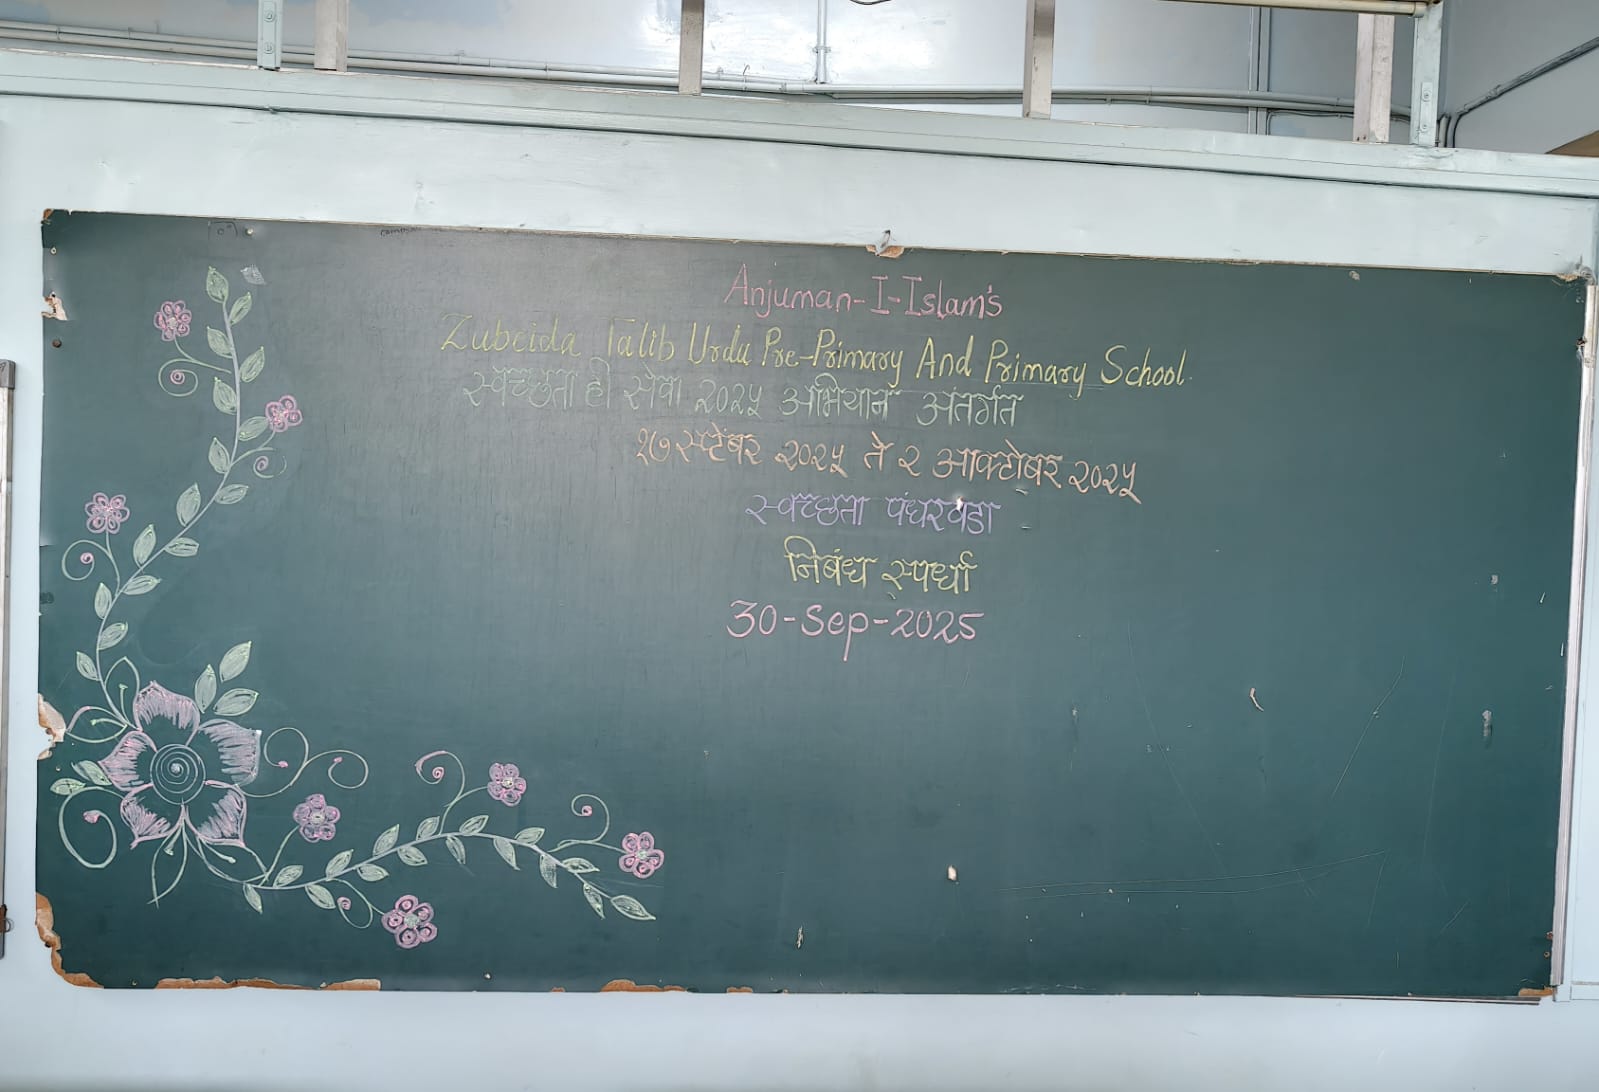 Anjuman-I-Islam's
Zubeida Talib Urdu Pre-Primary And Primary School
स्वच्छता ही सेवा २०२५ अभियान अंतर्गत
१७ सप्टेंबर २०२५ ते २ आक्टोबर २०२५
स्वच्छता पंधरवडा
निबंध स्पर्धा
30-Sep-2025